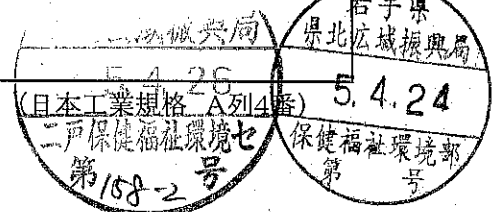 振興局
5.4.26
(日本工業規格 A列4番)
二戸保健福祉環境セ
第158-2号
岩手県
県北広域振興局
5.4.24
保健福祉環境部
第 号